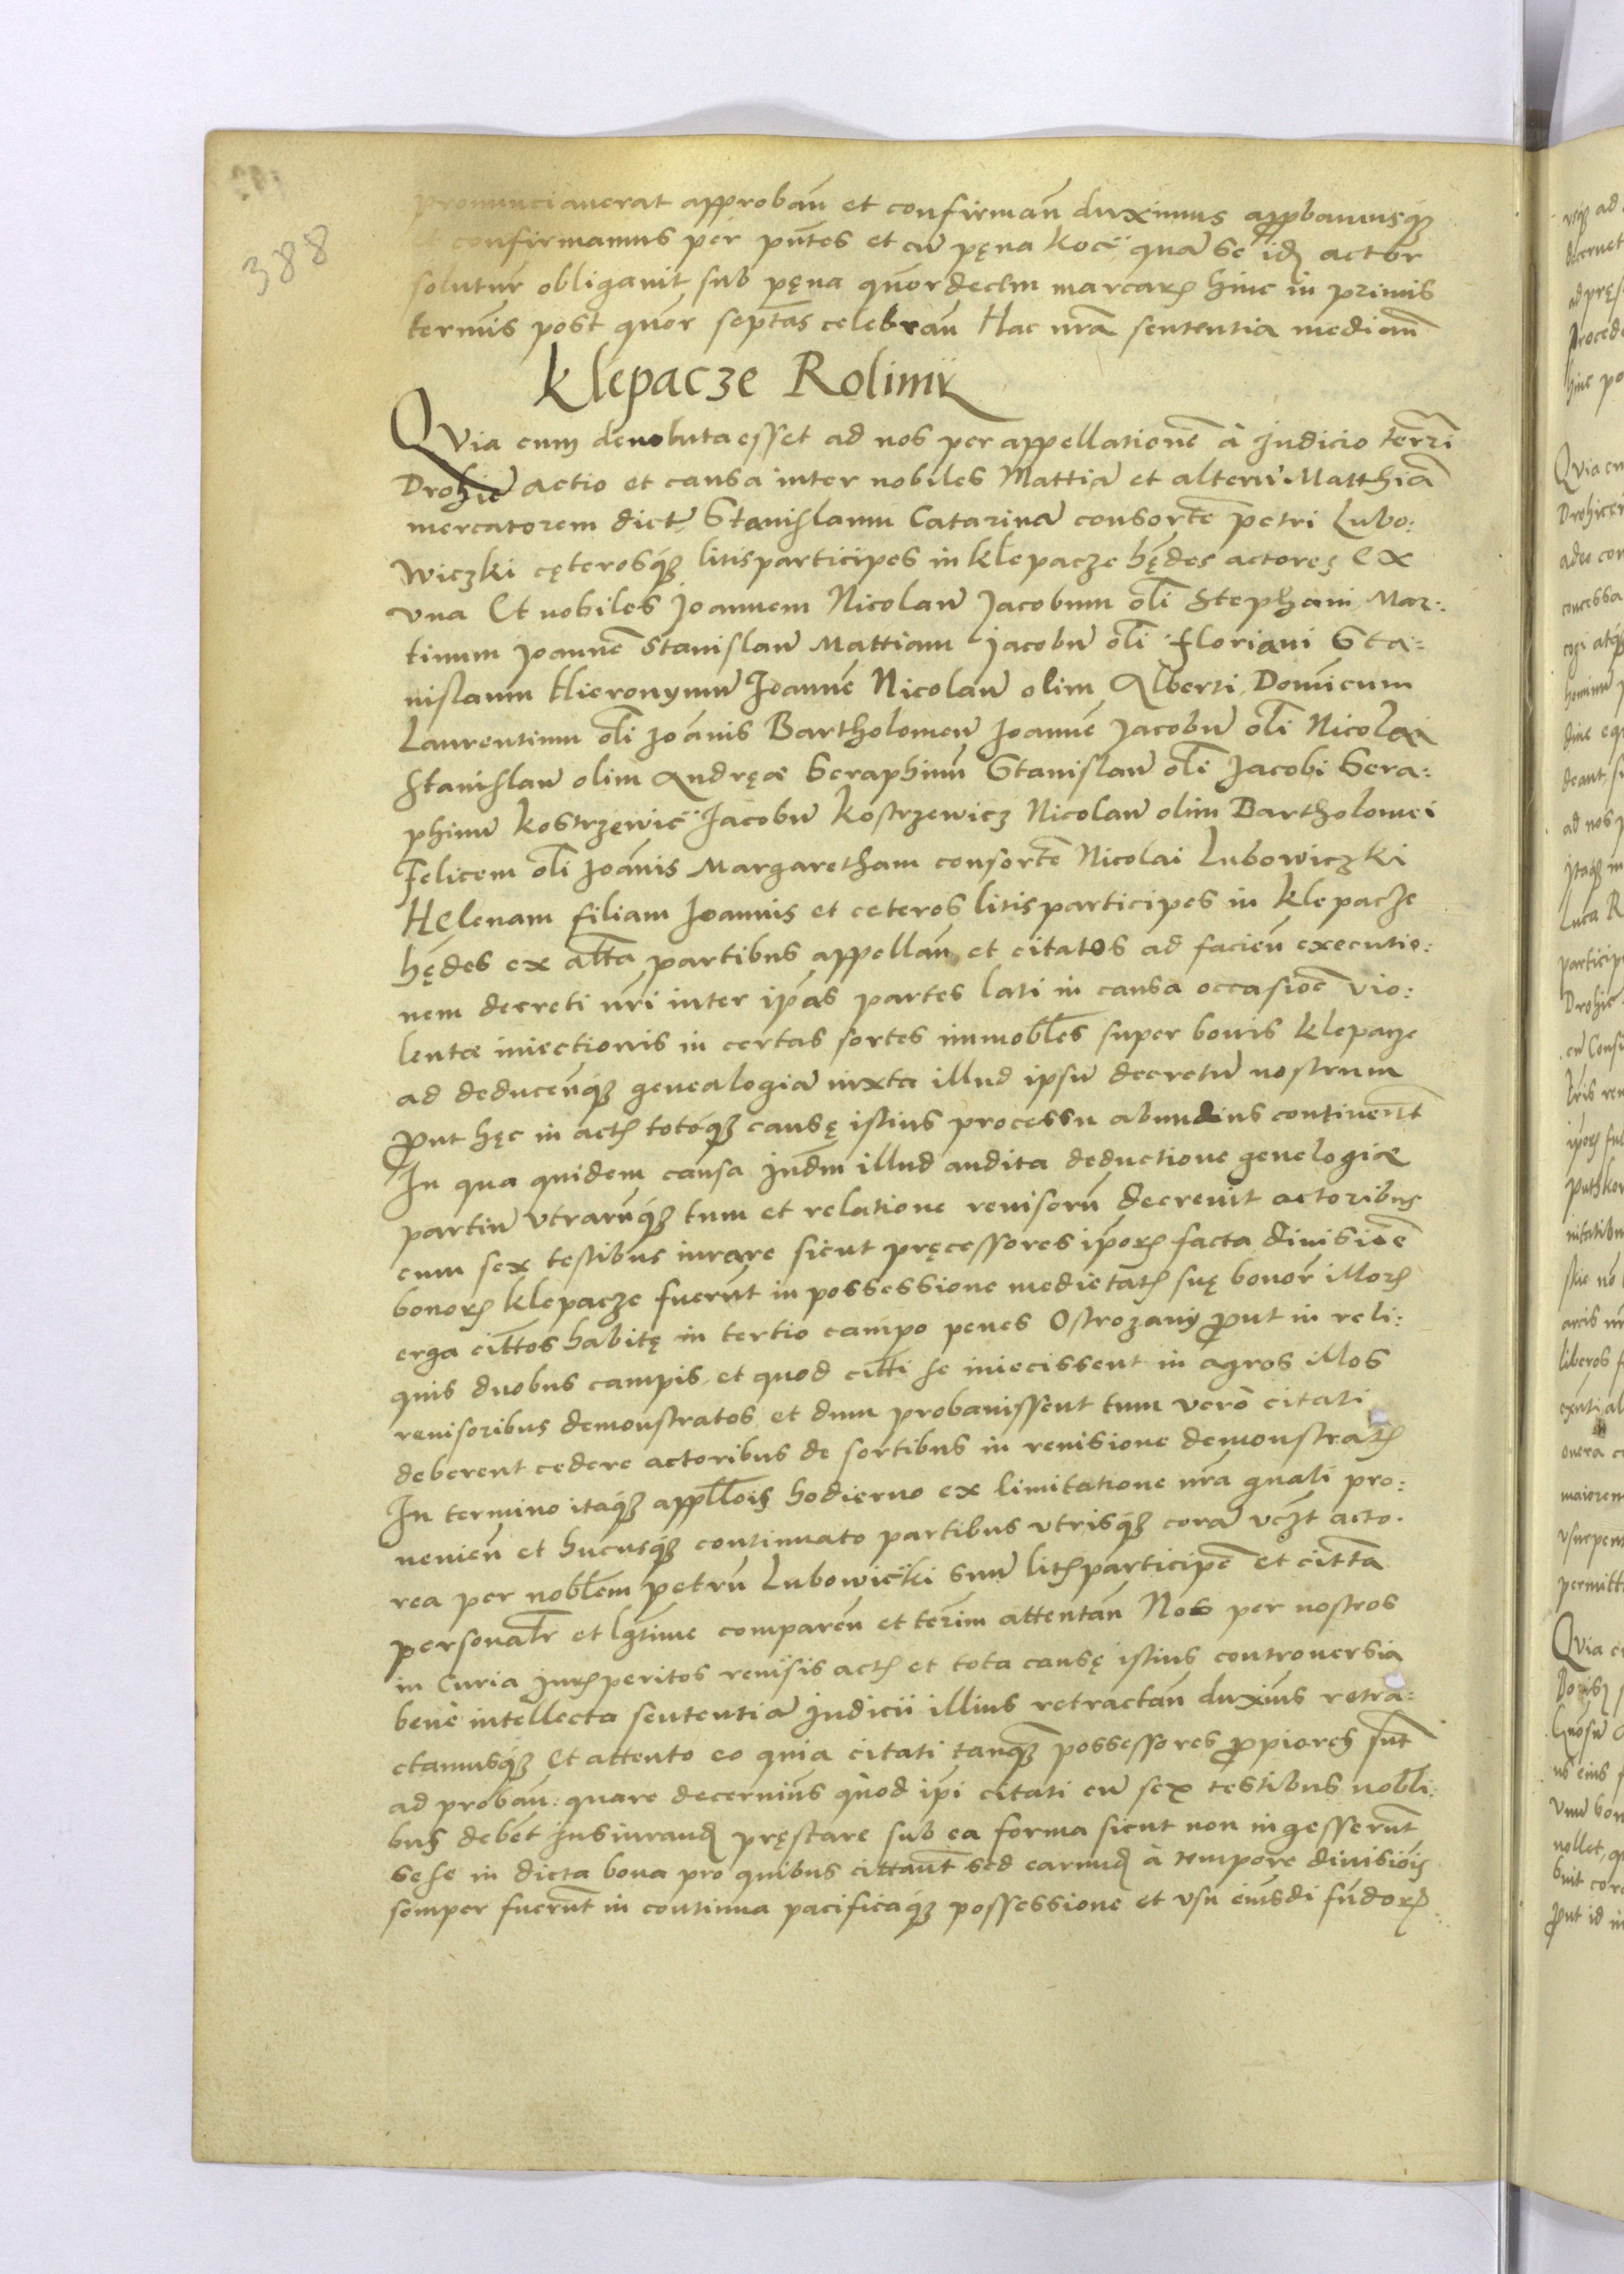 388
pronunciauerat approbañ et confirmañ duximus approbamusq3
et confirmamus per pñtes et cũ pęna Kocĩĩ quã se idẽ actor
soluturũ obligauit sub pęna quordecim marcarũ hinc in primis
termĩs post quor septĩas celebrañ Hac nrã sententia mediañ
Klepacze Rolimÿ
QVia cum deuoluta esset ad nos per appellationẽ à Judicio terrĩ
Drohic̃ actio et causa inter nobiles Mattiã et alterũ Matthiã
mercatorem dictũ Stanislaum Catarinã consortẽ petri Lubo:
wiczki cęterosq3 litisparticipes in Klepacze hędes actores ex
vna Et nobiles Joannem Nicolaũ Jacobum olĩ Stephani Mar:
tinum Joannẽ Stanislaũ Mattiam Jacobũ olĩ Floriani Sta:
nislaum Hieronymũ Joannẽ Nicolaũ olim Alberti Domĩcum
Laurentium olĩ Joãnis Bartholomeũ Joannẽ Jacobũ olĩ Nicolai
Stanislaũ olim Andręæ Seraphinũ Stanislaũ olĩ Jacobi Sera:
phinũ Kostrzewic̃ Jacobũ Kostrzewicz Nicolaũ olim Bartholomei
Felicem olĩ Joãnis Margaretham consortẽ Nicolai Lubowiczki
Helenam filiam Joannis et ceteros litisparticipes in Klepacze
hędes ex altĩa partibus appellañ et citatos ad facieñ executio:
nem decreti nrĩ inter ipãs partes lati in causa occasiõe vio:
lentæ iniectionis in certas sortes immobĩles super bonis Klepacze
ad deduceñq3 genealogiã iuxta illud ipsũ decretũ nostrum
prout hęc in actis totoq3 causę istius processu abundius continent̃
In qua quidem causa Judm̃ illud audita deductione genelogiæ
partiũ vtrarũq3 tum et relatione reuisorũ decreuit actoribus
cum sex testibus iurare sicut pręcessores ipõrũ facta diuisiõe
bonorũ Klepacze fuerũt in possessione medietatis suę bonorũ illorũ
erga citt̃os habitę in tertio campo penes Ostrozany prout in reli:
quis duobus campis et quod citt̃i se iniecissent in agros illos
reuisoribus demonstratos et dum probauissent tum verò citati
deberent cedere actoribus de sortibus in reuisione demonstratis
In termino itaq3 appllõis hodierno ex limitatione nrã gñali pro:
uenieñ et hucusq3 continuato partibus vtrisq3 corã vcz̃t acto.
rea per noblẽm petrũ Lubowic̃ki suũ litisparticipẽ et citt̃a
personalr̃ et lg̃time compareñ et ter̃im attentañ Nos per nostros
in Curia Jurisperitos reuisis actis et tota causę istius controuersia
bene intellecta sententiã Judicii illius retractañ duxim̃s retra:
ctamusq3 Et attento eo quia citati tanq3 possessores propiores sũt
ad probañ: quare decernim̃s quod ipĩ citati cũ sex testibus nobĩli:
bus debẽt Jusiurandũ pręstare sub ea forma sicut non ingesserũt
sese in dicta bona pro quibus citt̃ant̃ sed earundẽ à tempore diuisiõis
semper fuerũt in continua pacificaq3 possessione et vsu eiusdĩ fũdorũ